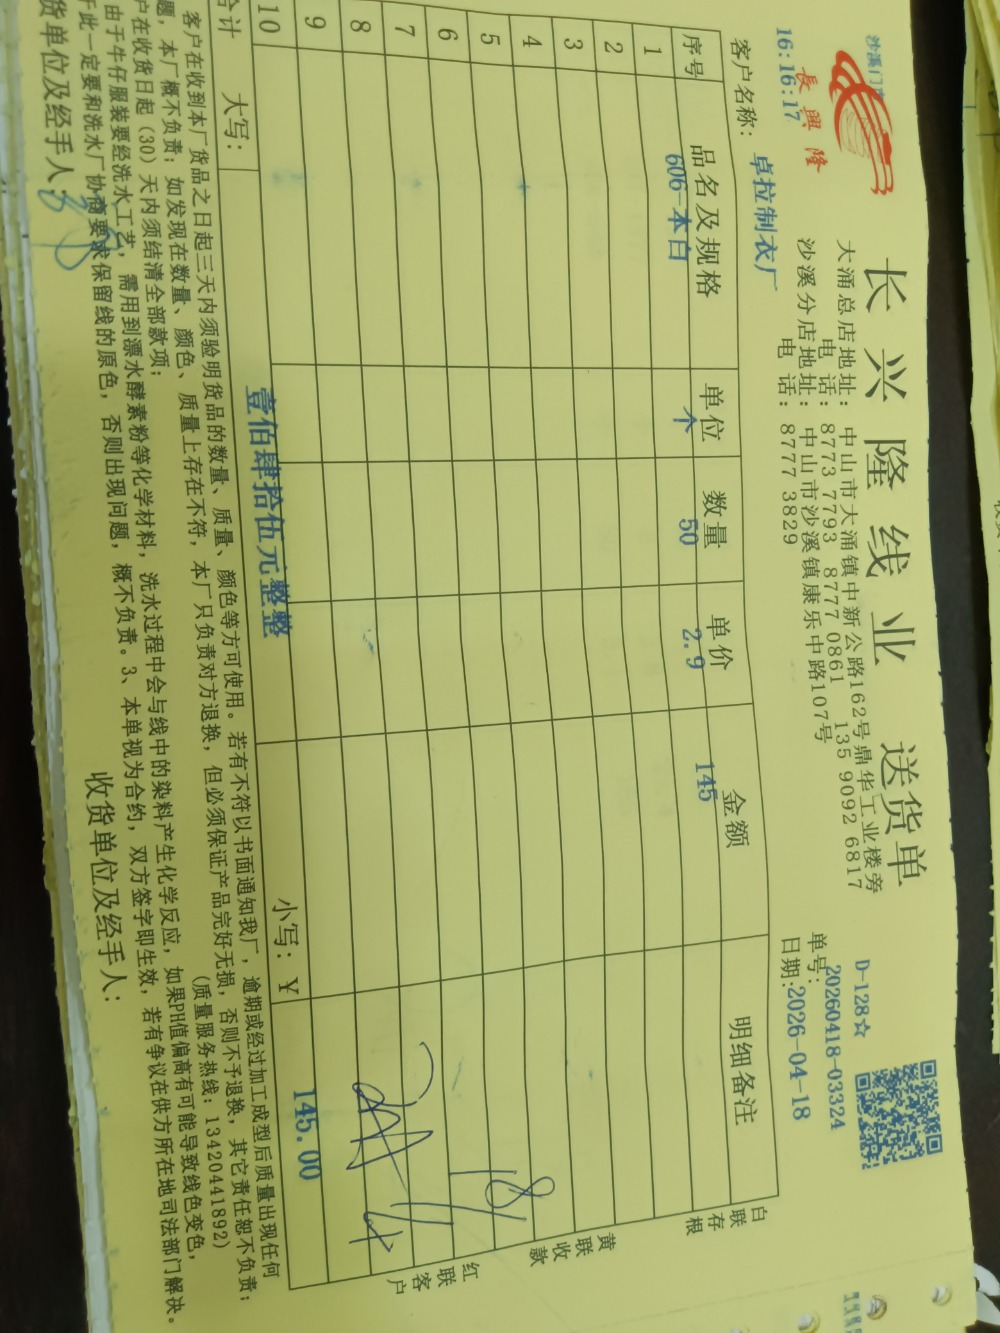 長興隆
长兴隆线业 送货单
大涌总店地址：中山市大涌镇中新公路162号鼎华工业楼旁
电 话：8773 7793 8777 0861 135 9092 6817
沙溪分店地址：中山市沙溪镇康乐中路107号
电 话：8777 3829
沙溪门
16:16:17
D-128☆
单号：20260418-03324
日期：2026-04-18
客户名称：卓拉制衣厂
序号 品名及规格 单位 数量 单价 金额 明细备注
1 606-本白 个 50 2.9 145
2
3
4
5
6
7
8
9
10
合计 大写：壹佰肆拾伍元整整 小写：￥145.00
客户在收到本厂货品之日起三天内须验明货品的数量、质量、颜色等方可使用。若有不符以书面通知我厂，逾期或经过加工成型后质量出现任何
题，本厂概不负责；如发现在数量、颜色、质量上存在不符，本厂只负责对方退换，但必须保证产品完好无损，否则不予退换，其它责任恕不负责；
户在收货日起（30）天内须结清全部款项； （质量服务热线：13420441892）
由于牛仔服装要经洗水工艺，需用到漂水酵素粉等化学材料，洗水过程中会与线中的染料产生化学反应，如果PH值偏高有可能导致线色变色，
于此一定要和洗水厂协商要求保留线的原色，否则出现问题，概不负责。3、本单视为合约，双方签字即生效，若有争议在供方所在地司法部门解决。
货单位及经手人： 收货单位及经手人：
白联存根
黄联收款
红联客户